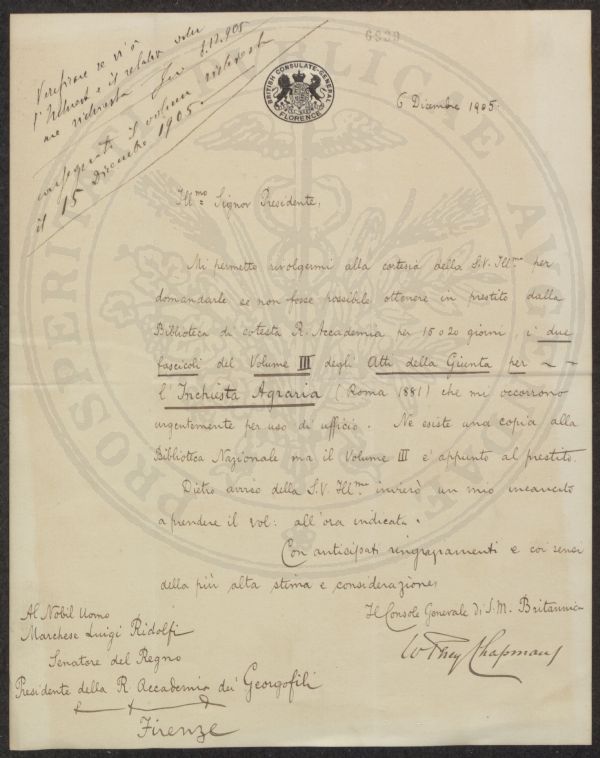 Verificare se vi è
consegnato il volume richiesto
il 15 Dicembre 1905.
6639
BRITISH CONSULATE-GENERAL
FLORENCE
6 Dicembre 1905.
Ill.mo Signor Presidente,
Mi permetto rivolgermi alla cortesia della S.V. Ill.ma per
domandarle se non fosse possibile ottenere in prestito dalla
Biblioteca di cotesta R. Accademia per 15 o 20 giorni i due
fascicoli del Volume III degli Atti della Giunta per
l'Inchiesta Agraria (Roma 1881) che mi occorrono
urgentemente per uso di ufficio. Ne esiste una copia alla
Biblioteca Nazionale ma il Volume III e' appunto al prestito.
Dietro avviso della S.V. Ill.ma invierò un mio incaricato
a prendere il vol: all'ora indicata.
Con anticipati ringraziamenti e coi sensi
della più alta stima e considerazione,
Il Console Generale di S.M. Britannica
Chapman
Al Nobil Uomo
Marchese Luigi Ridolfi
Senatore del Regno
Presidente della R. Accademia dei Georgofili
Firenze
PROSPERITATI PUBLICAE AUGENDAE